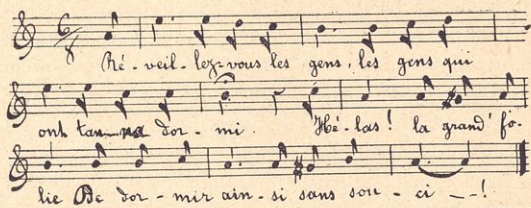 6/8
Ré-veil-lez-vous les gens, les gens qui
ont tan- dor-mi. Hé-las! la grand' fo-
lie De dor-mir ain-si sans sou-ci --!